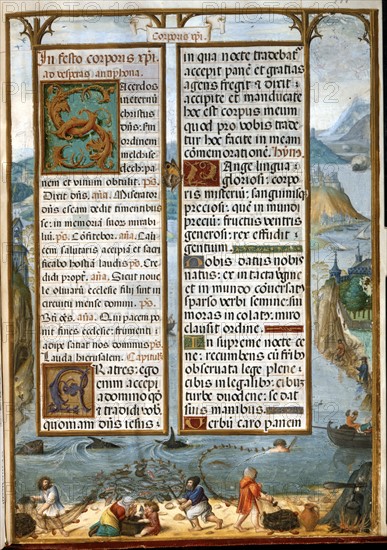 Corporis xp̄i.
In festo corporis xp̄i.
ad vesperas antiphona.
Sacerdos
in eternū
christus
dn̄s: sm̄
ordinem
melchise
dech: pa
nem et vinum obtulit. ps̄.
Dixit dn̄s. an̄a. Miserator
dn̄s escam dedit timentibus
se: in memoria suor mirabi
liū. ps̄. Confitebor. an̄a. Cali
cem salutaris accipiā et sacri
ficabo hostiā laudis. ps̄. Cre
didi propter. an̄a. Sicut nove
le olivarū ecclesie filii sint in
circuitu mense domini. ps̄.
an̄a. Qui pacem po
nit fines ecclesie: frumenti
adipe satiat nos dominus. ps̄.
Lauda hierusalem. Capitulū
Fratres: ego
enim accepi
a domino qō
et tradidi vob.
quoniam dn̄s iesus:
in qua nocte tradebat
accepit panē et gratias
agens fregit et dixit:
accipite et manducate
hoc est corpus meum
quod pro vobis trade
tur hoc facite in meam
cōmemorationē. Hym.
Pange lingua
gloriosi: corpo
ris misteriū: sanguinisq
preciosi: quē in mundi
preciū: fructus ventris
generosi: rex effudit
gentium.
Nobis datus nobis
natus: ex intacta vgīne
et in mundo cōversatus
sparso verbi semine: sui
moras incolatꝰ: miro
clausit ordine.
In supreme nocte ce
ne: recumbens cū fribꝰ
observata lege plene:
cibis in legalibꝰ: cibū
turbe duodene: se dat
suis manibus.
Verbū caro panem